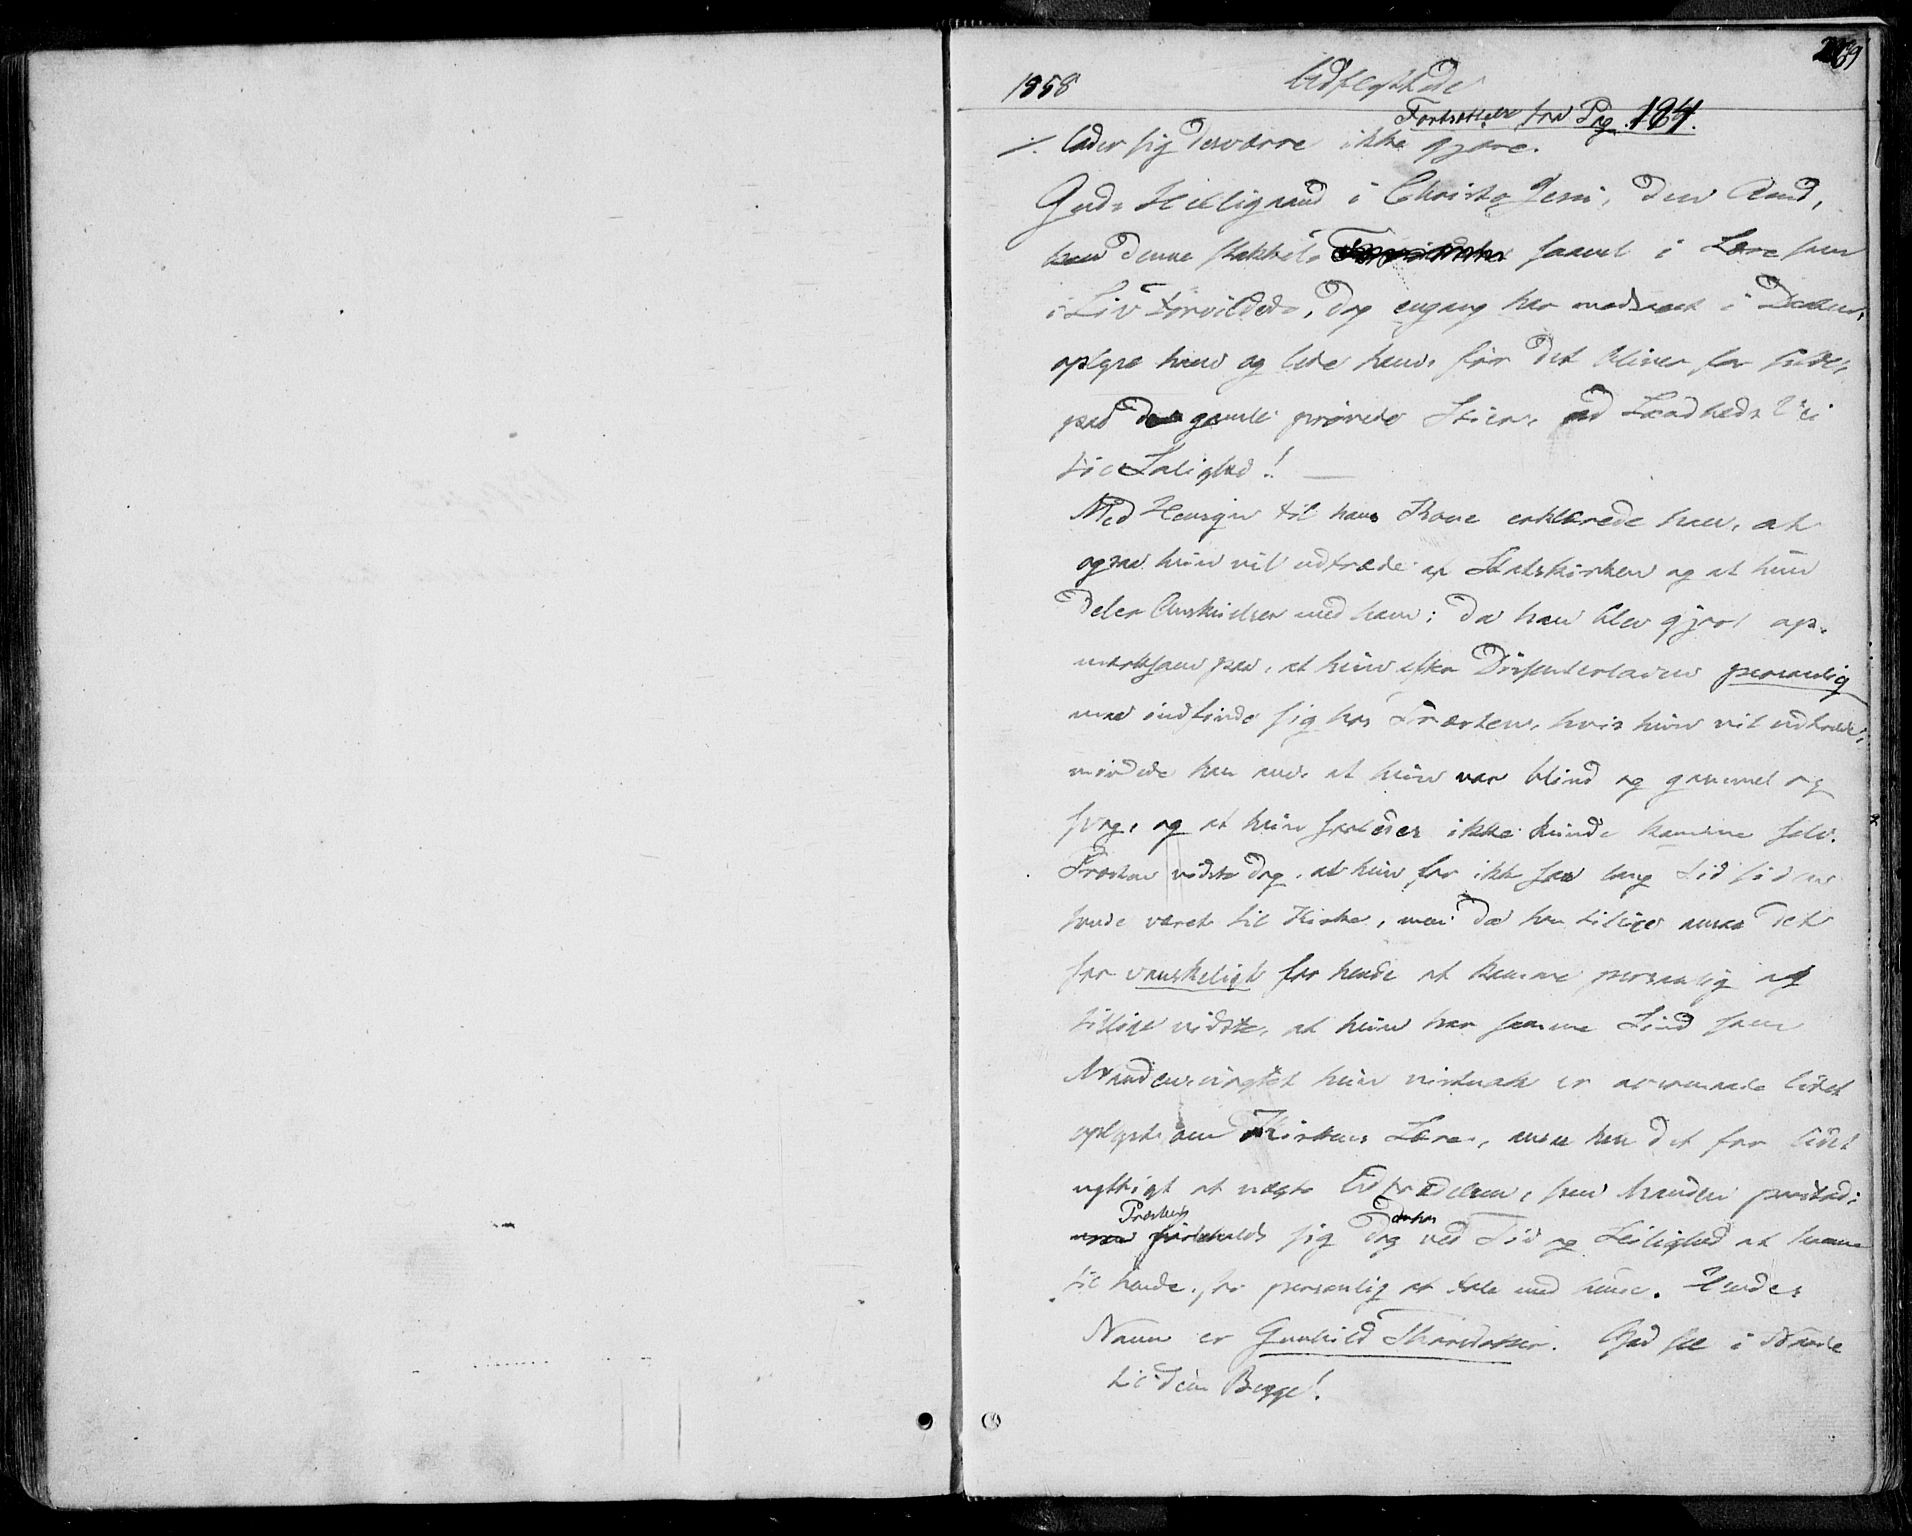 1858 Udflyttede
Fortsættelse fra Pag. 184.
./. lader sig desværre ikke gjøre.
Guds Helligaand i Christo Jesu, den Aand,
denne stakkels saavel i Lære som
i Liv forvildede, dog engang har modtaget i Daaben,
oplyse ham og lede ham, før det bliver for silde,
paa de gamle prøvede Stier, ad Sandheds Vei
til Salighed! —
Med Hensyn til hans Kone erklærede han, at
ogsaa hun vil udtræde af Statskirken og at hun
deler Anskuelser med ham; da han blev gjort op-
mærksom paa, at hun efter Dissenterloven personlig
maa indfinde sig hos Præsten, hvis hun vil udtræde,
at hun var blind og gammel og
svag, og at hun saaledes ikke kunde komme selv.
Præsten vidste dog, at hun for ikke saa lang Tid siden
havde været til Kirke, men da han tillige ansaa det
for vanskeligt for hende at komme personlig og
tillige vidste, at hun har samme Sind som
Manden, uagtet hun vistnok er overmaade lidet
oplyst om Kirkens Lære, ansaa han det for lidet
nyttigt at nægte Udtrædelsen, som Manden paastod;
Præsten forbeholdt sig dog ved Tid og Leilighed at komme
til hende, for personlig at tale med hende. Hendes
Navn er Gunhild . Gud see i Naade
til dem Begge!